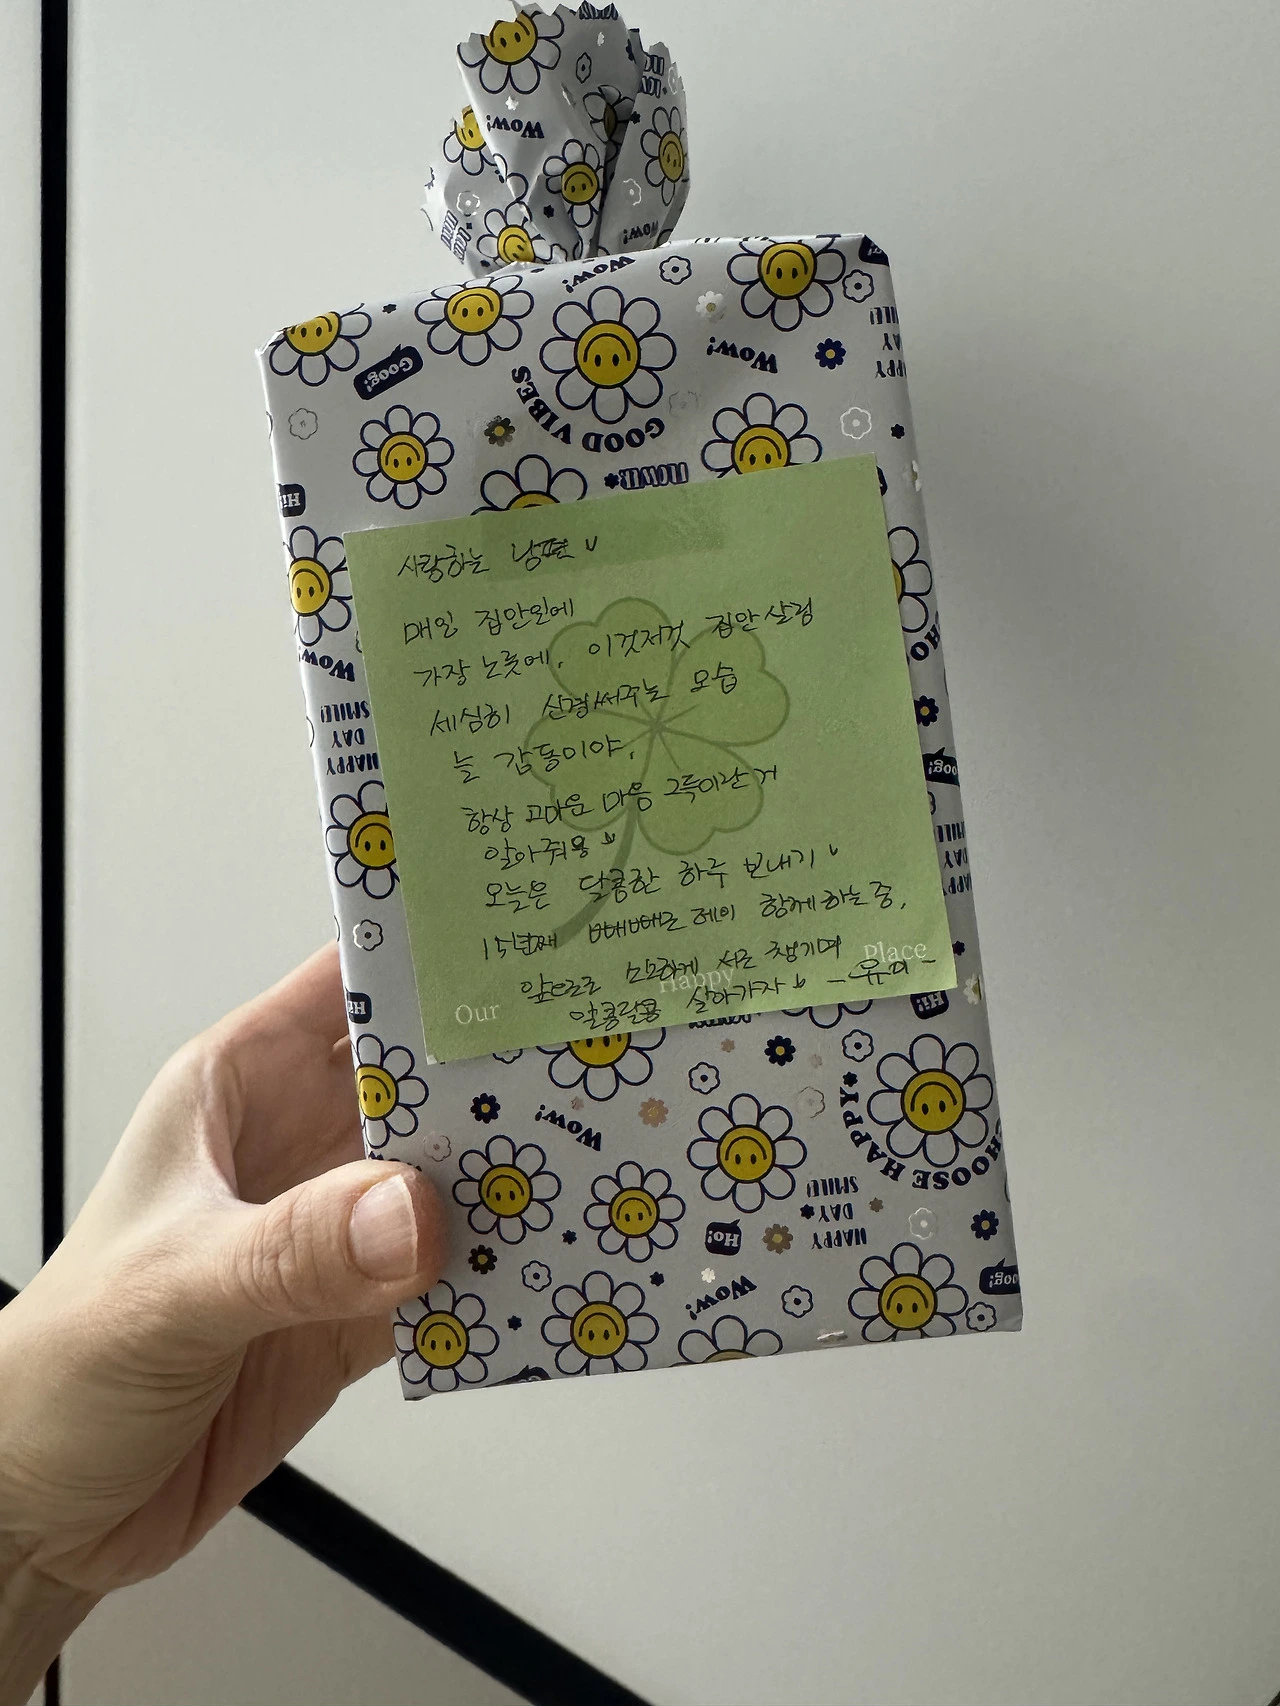 사랑하는 남편
매일 집안일에
가장 노릇에, 이것저것 집안살림
세심히 신경써주는 모습
늘 감동이야,
항상 고마운 마음 그득이란거
알아줘용
오늘은 달콤한 하루 보내기
15년째 빼빼로 데이 함께하는중,
앞으로도 소소하게 서로 챙기며
알콩달콩 살아가자
Our Happy Place
GOOD VIBES
FLOWER
Wow!
Goog!
Hi!
Ho!
HAPPY
DAY
SMILE!
CHOOSE HAPPY